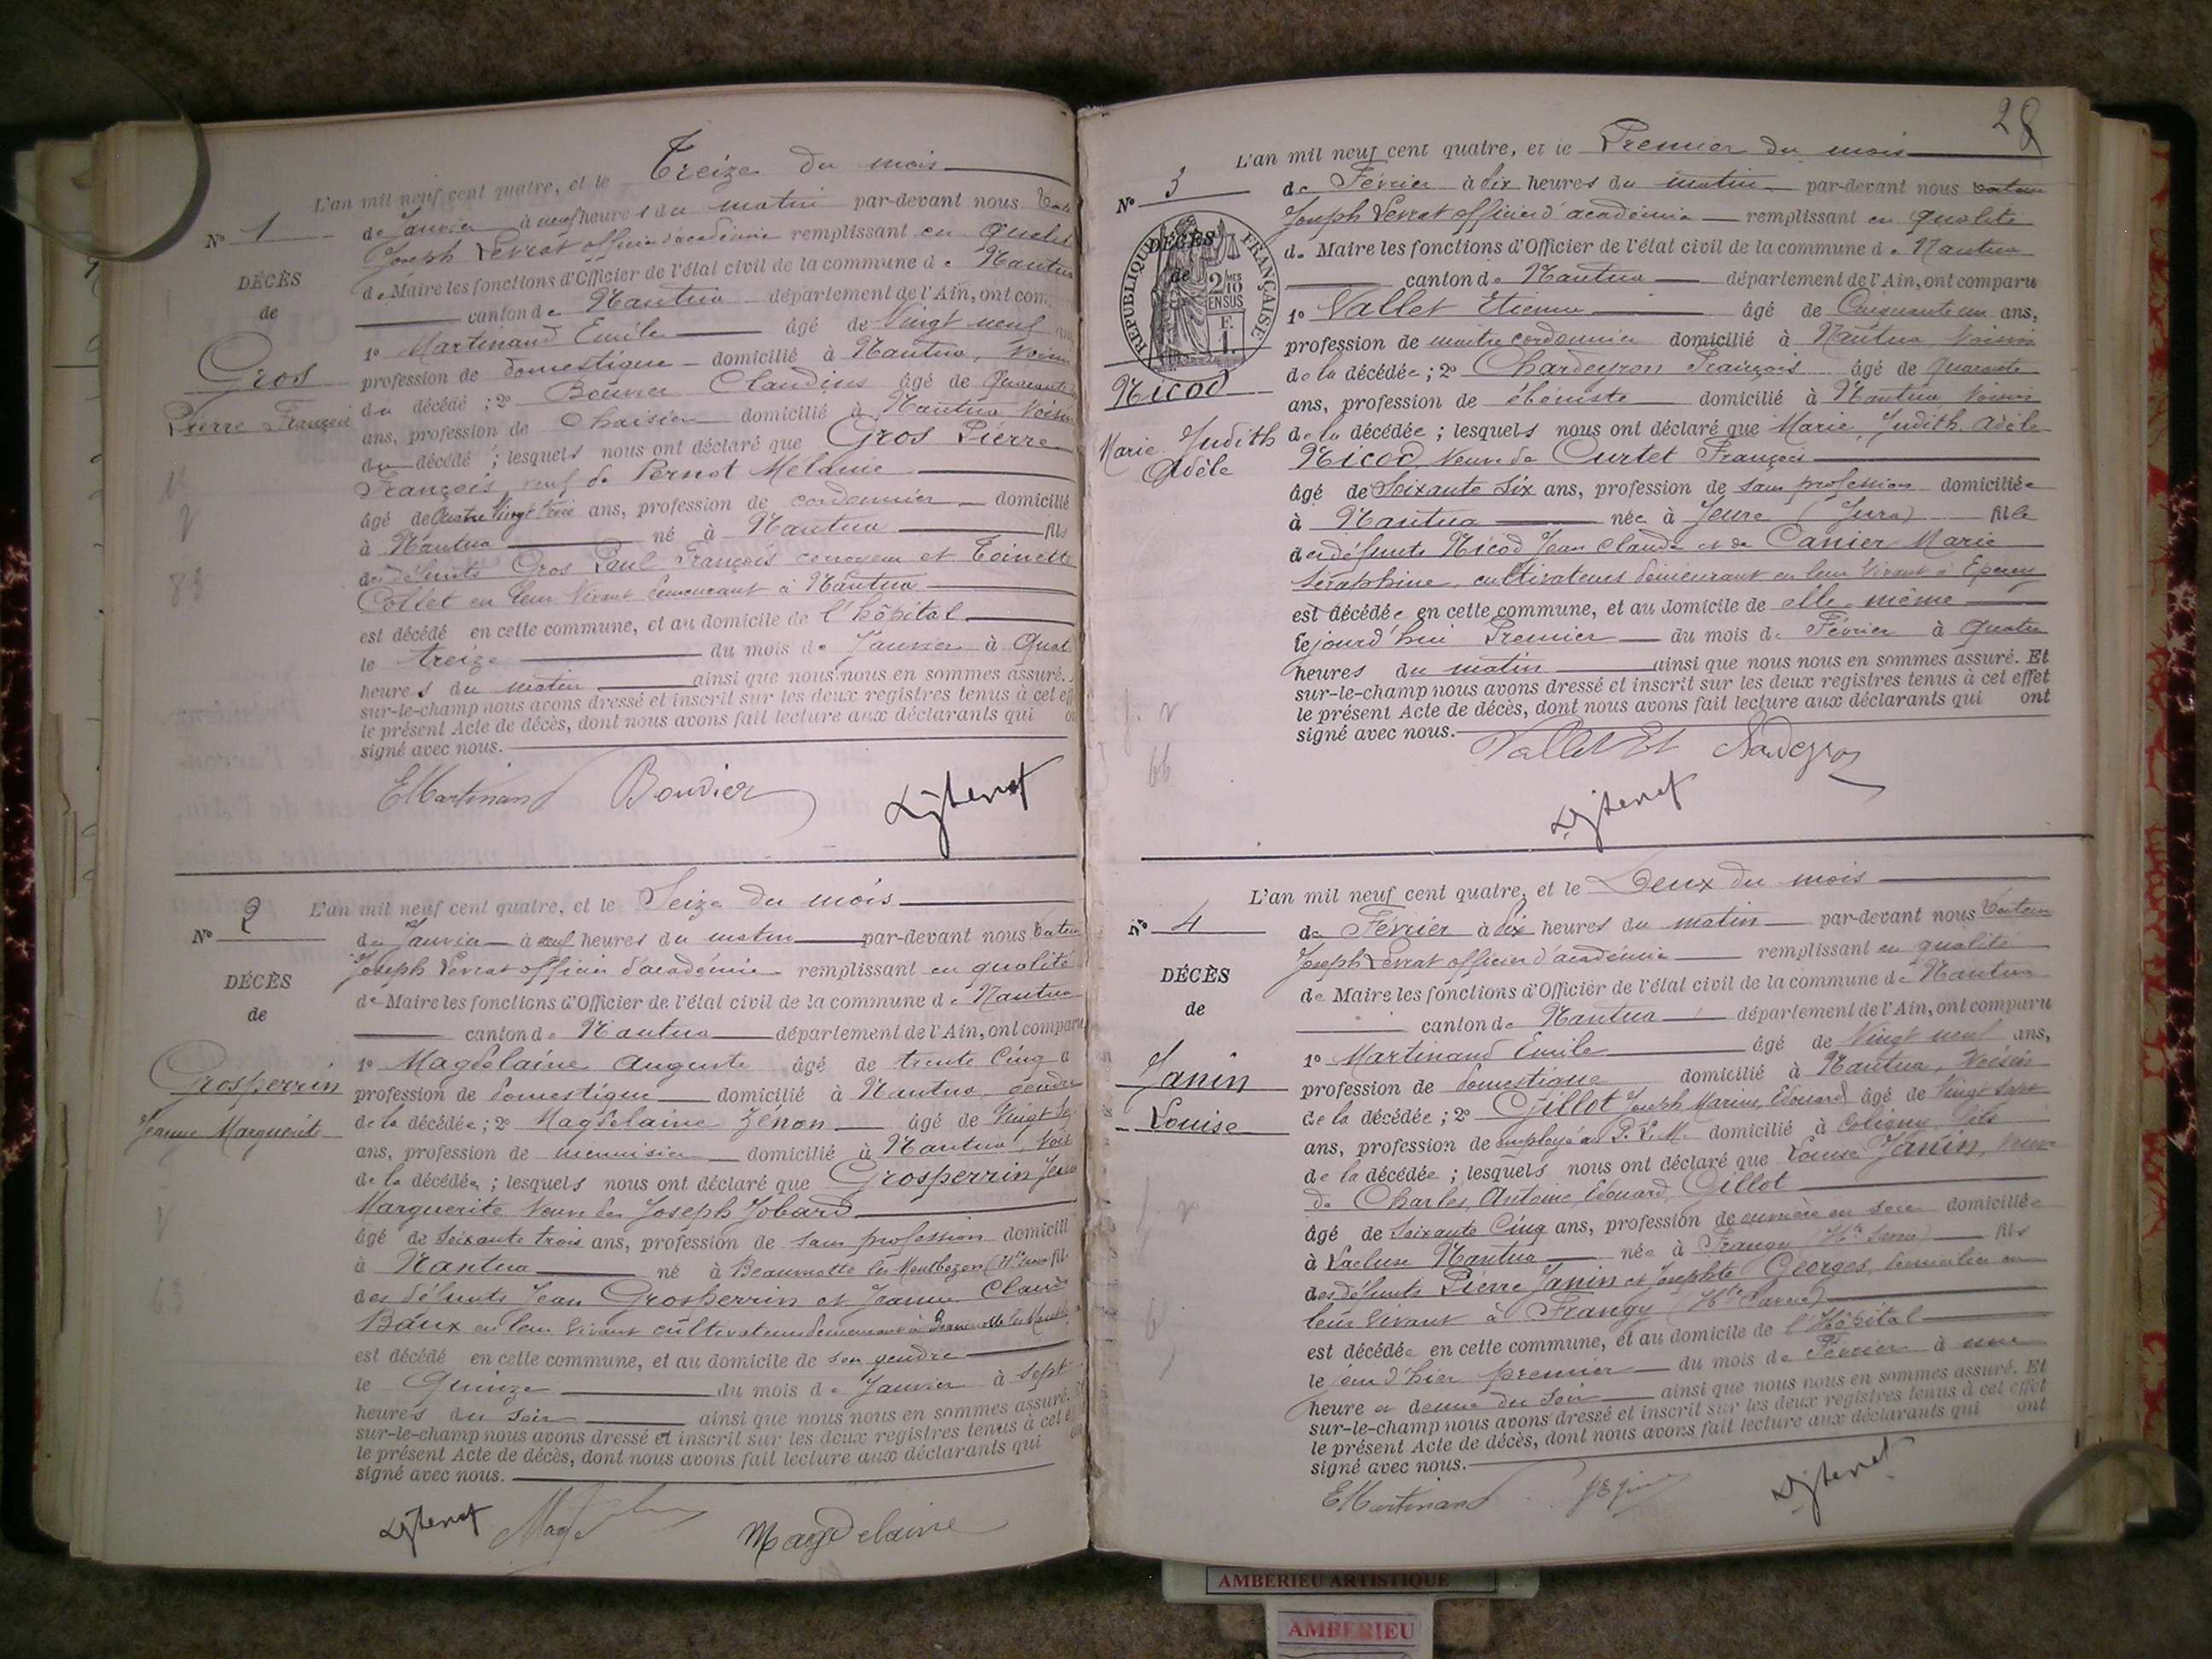 L'an mil neuf cent quatre, et le Treize du mois
N° 1
de Janvier à neuf heures du matin par-devant nous
Joseph Levrat officier d'académie remplissant en
DÉCÈS
de Maire les fonctions d'Officier de l'état civil de la commune de Nantua
de
canton de Nantua département de l'Ain, ont com
1° Martinand Emile âgé de Vingt neuf
Gros
Pierre François
profession de domestique domicilié à Nantua, voisin
du décédé ; 2° Bouvier Claudius âgé de Quarante
ans, profession de Chaisier domicilié à Nantua voisin
du décédé ; lesquels nous ont déclaré que Gros Pierre
François, veuf de Pernot Mélanie
âgé de Quatre Vingt trois ans, profession de cordonnier domicilié
à Nantua né à Nantua fils
des défunts Gros Paul François corroyeur et Toinette
Collet en leur vivant demeurant à Nantua
83
est décédé en cette commune, et au domicile de l'hôpital
le treize du mois de Janvier à Quat
heures du matin ainsi que nous nous en sommes assuré.
sur-le-champ nous avons dressé et inscrit sur les deux registres tenus à cet eff
le présent Acte de décès, dont nous avons fait lecture aux déclarants qui
signé avec nous.
EMartinand Bouvier
L'an mil neuf cent quatre, et le Seize du mois
N° 2
de Janvier à neuf heures du matin par-devant nous
Joseph Levrat officier d'académie remplissant en qualité
DÉCÈS
de Maire les fonctions d'Officier de l'état civil de la commune de Nantua
de
canton de Nantua département de l'Ain, ont comparu
1° Magdelaine Auguste âgé de trente Cinq a
Grosperrin
Jeanne Marguerite
profession de domestique domicilié à Nantua, gendre
de la décédée ; 2° Magdelaine Zénon âgé de Vingt
ans, profession de menuisier domicilié à Nantua, Vois
de la décédée ; lesquels nous ont déclaré que Grosperrin
Marguerite Veuve de Joseph Jobard
âgé de Soixante trois ans, profession de sans profession domicili
à Nantua né à Beaumotte les Montbozon
des défunts Jean Grosperrin et Jeanne Claude
Baux en leur vivant cultivateurs demeurant à Beaumotte les
63
est décédé en cette commune, et au domicile de son gendre
le Quinze du mois de Janvier à Sept
heures du soir ainsi que nous nous en sommes assuré.
sur-le-champ nous avons dressé et inscrit sur les deux registres tenus à cet
le présent Acte de décès, dont nous avons fait lecture aux déclarants qui
signé avec nous.
Magdelaine
28
L'an mil neuf cent quatre, et le Premier du mois
N° 3
de Février à dix heures du matin par-devant nous
Joseph Levrat officier d'académie remplissant en qualité
DÉCÈS
de
RÉPUBLIQUE FRANÇAISE
de Maire les fonctions d'Officier de l'état civil de la commune de Nantua
canton de Nantua département de l'Ain, ont comparu
1° Vallet Etienne âgé de Cinquante un ans,
profession de maitre cordonnier domicilié à Nantua voisin
Nicod
Marie Judith
Adèle
de la décédée ; 2° Chardeyron François âgé de Quarante
ans, profession de ébéniste domicilié à Nantua voisin
de la décédée ; lesquels nous ont déclaré que Marie, Judith, Adèle
Nicod, Veuve de Curtet François
âgé de Soixante Six ans, profession de sans profession domiciliée
à Nantua née à Jeure (Jura) fille
des défunts Nicod Jean Claude et de Canier Marie
Séraphine, cultivateurs demeurant en leur vivant à
est décédée en cette commune, et au domicile de elle même
le jourd'hui Premier du mois de Février à Quatre
heures du matin ainsi que nous nous en sommes assuré. Et
sur-le-champ nous avons dressé et inscrit sur les deux registres tenus à cet effet
le présent Acte de décès, dont nous avons fait lecture aux déclarants qui ont
signé avec nous.
66
Vallet Et
L'an mil neuf cent quatre, et le Deux du mois
N° 4
de Février à dix heures du matin par-devant nous
Joseph Levrat officier d'académie remplissant en qualité
DÉCÈS
de Maire les fonctions d'Officier de l'état civil de la commune de Nantua
de
canton de Nantua département de l'Ain, ont comparu
1° Martinand Emile âgé de Vingt neuf ans,
Janin
Louise
profession de domestique domicilié à Nantua, Voisin
de la décédée ; 2° Gillot Joseph Marius, Edouard âgé de Vingt Sept
ans, profession de employé au P. L. M. domicilié à Coligny, fils
de la décédée ; lesquels nous ont déclaré que Louise Janin, veuve
de Charles, Antoine, Edouard, Gillot
âgé de Soixante Cinq ans, profession de ouvrière en soie domiciliée
à Lacluse Nantua née à Frangy fille
des défunts Pierre Janin et Josephte Georges, domiciliés en
leur vivant à Frangy (Hte Savoie)
est décédée en cette commune, et au domicile de l'Hôpital
le jour d'hier premier du mois de Février à une
heure et demie du soir ainsi que nous nous en sommes assuré. Et
sur-le-champ nous avons dressé et inscrit sur les deux registres tenus à cet effet
le présent Acte de décès, dont nous avons fait lecture aux déclarants qui ont
signé avec nous.
EMartinand
AMBERIEU ARTISTIQUE
AMBERIEU